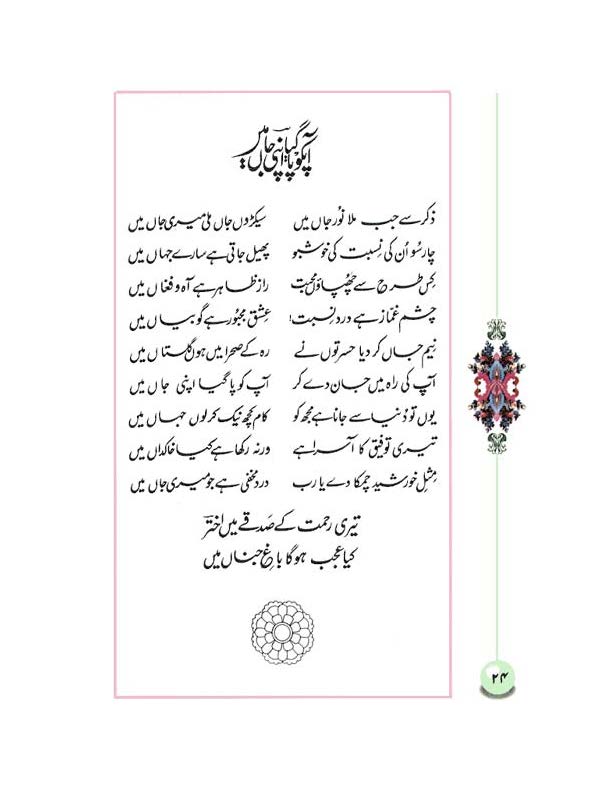 آپ کو پا گیا اپنی جاں میں
ذکر سے جب ملا نورِ جاں میں سیکڑوں جاں ملی میری جاں میں
چار سُو اُن کی نِسبت کی خوشبو پھیل جاتی ہے سارے جہاں میں
کِس طرح سے چُھپاؤں محبت راز ظاہر ہے آہ و فغاں میں
چشم غمّاز ہے دردِ نِسبت عِشق مجبور ہے گو بیاں میں
نِیم جاں کر دیا حسرتوں نے رہ کے صحرا میں ہوں گلستاں میں
آپ کی راہ میں جان دے کر آپ کو پا گیا اپنی جاں میں
یوں تو دُنیا سے جانا ہے مجھ کو کام کچھ نیک کر لوں جہاں میں
تیری توفیق کا آسرا ہے ورنہ رکھا ہے کیا خاکداں میں
مِثلِ خورشید چمکا دے یا رب دردِ مخفی ہے جو میری جاں میں
تیری رحمت کے صَدقے میں اختؔر
کیا عجب ہوگا باغِ جناں میں
۲۴